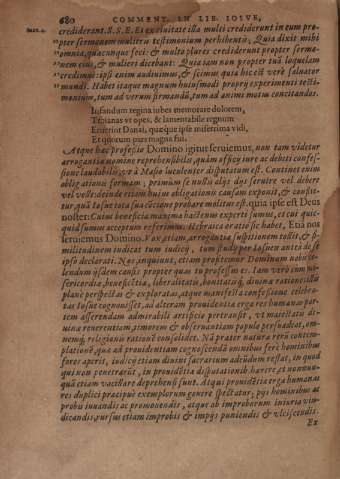 680 COMMENT. IN LIB. IOSVE,
crediderant. S. S. E. Et ex ciuitate illa multi crediderunt in eum pro-
pter sermonem mulieris testimonium perhibentis, Quia dixit mihi
omnia, quæcunque feci: & multo plures crediderunt propter sermo-
nem eius, & mulieri dicebant: Quia iam non propter tuã loquelam
credimus: ipsi enim audiuimus, & scimus quia hic est verè saluator
mundi. Habet itaque magnum huiusmodi proprij experimenti testi-
monium, tum ad verum firmandũ, tum ad animi motus concitandos.
Infandum regina iubes memorare dolorem,
Troianas vt opes, & lamentabile regnum
Eruerint Danai, quæque ipse miserrima vidi,
Et quorum pars magna fui.
Atque hæc professio Domino igitur seruiemus, non tam videtur
arrogantiæ nomine reprehensibilis, quàm officij iure ac debiti confes-
sione laudabilis,
obligationis formam; primùm se nulli alij dijs seruire vel debere
vel velle: deinde etiam huius obligationis causam exponit, & confite-
quia ipse est Deus
noster: Cuius beneficia maxima hactenus experti sumus, et cui quic-
quid sumus acceptum referimus. Hebræa oratio sic habet, Etiã nos
seruiemus Domino.
militudinem iudicat tum iudicij, tum
ipso declarati. Nos, inquiunt, etiam profitemur Dominum nobis co-
lendum ijsdem causis propter quas tu professus es. Iam verò cum mi-
sericordiæ, beneficentiæ, liberalitatis, bonitatisq́; diuinæ rationes illis
planè perspectas & exploratas, atque manifesta confessione celebra-
tas Iosue cognouisset, ad alteram prouidentiæ erga res humanas par-
tem asserendam admirabili artificio pertransit, vt maiestatis di-
uinæ reuerentiam, timorem & obseruantiam populo persuadeat, om-
nemq́; religionis rationē consolidet. Nã præter naturæ rerũ contem-
plationē, quæ ad prouidentiam cognoscendã omnibus ferè hominibus
fores aperit, iudicio etiam diuini sacrarium adeũdum restat, in quod
qui non penetrarũt, in prouidētiæ disputationib. hærere, et nonnun-
quã etiam vacillare deprehensi sunt. Atqui prouidētia erga humanas
res duplici præcipuè exemplorum genere spectatur, pijs hominibus ac
probis iuuandis ac promouendis, atque ab improborum iniuria vin-
dicandis, rursus etiam improbis & impijs puniendis & vlciscendis.
Ex